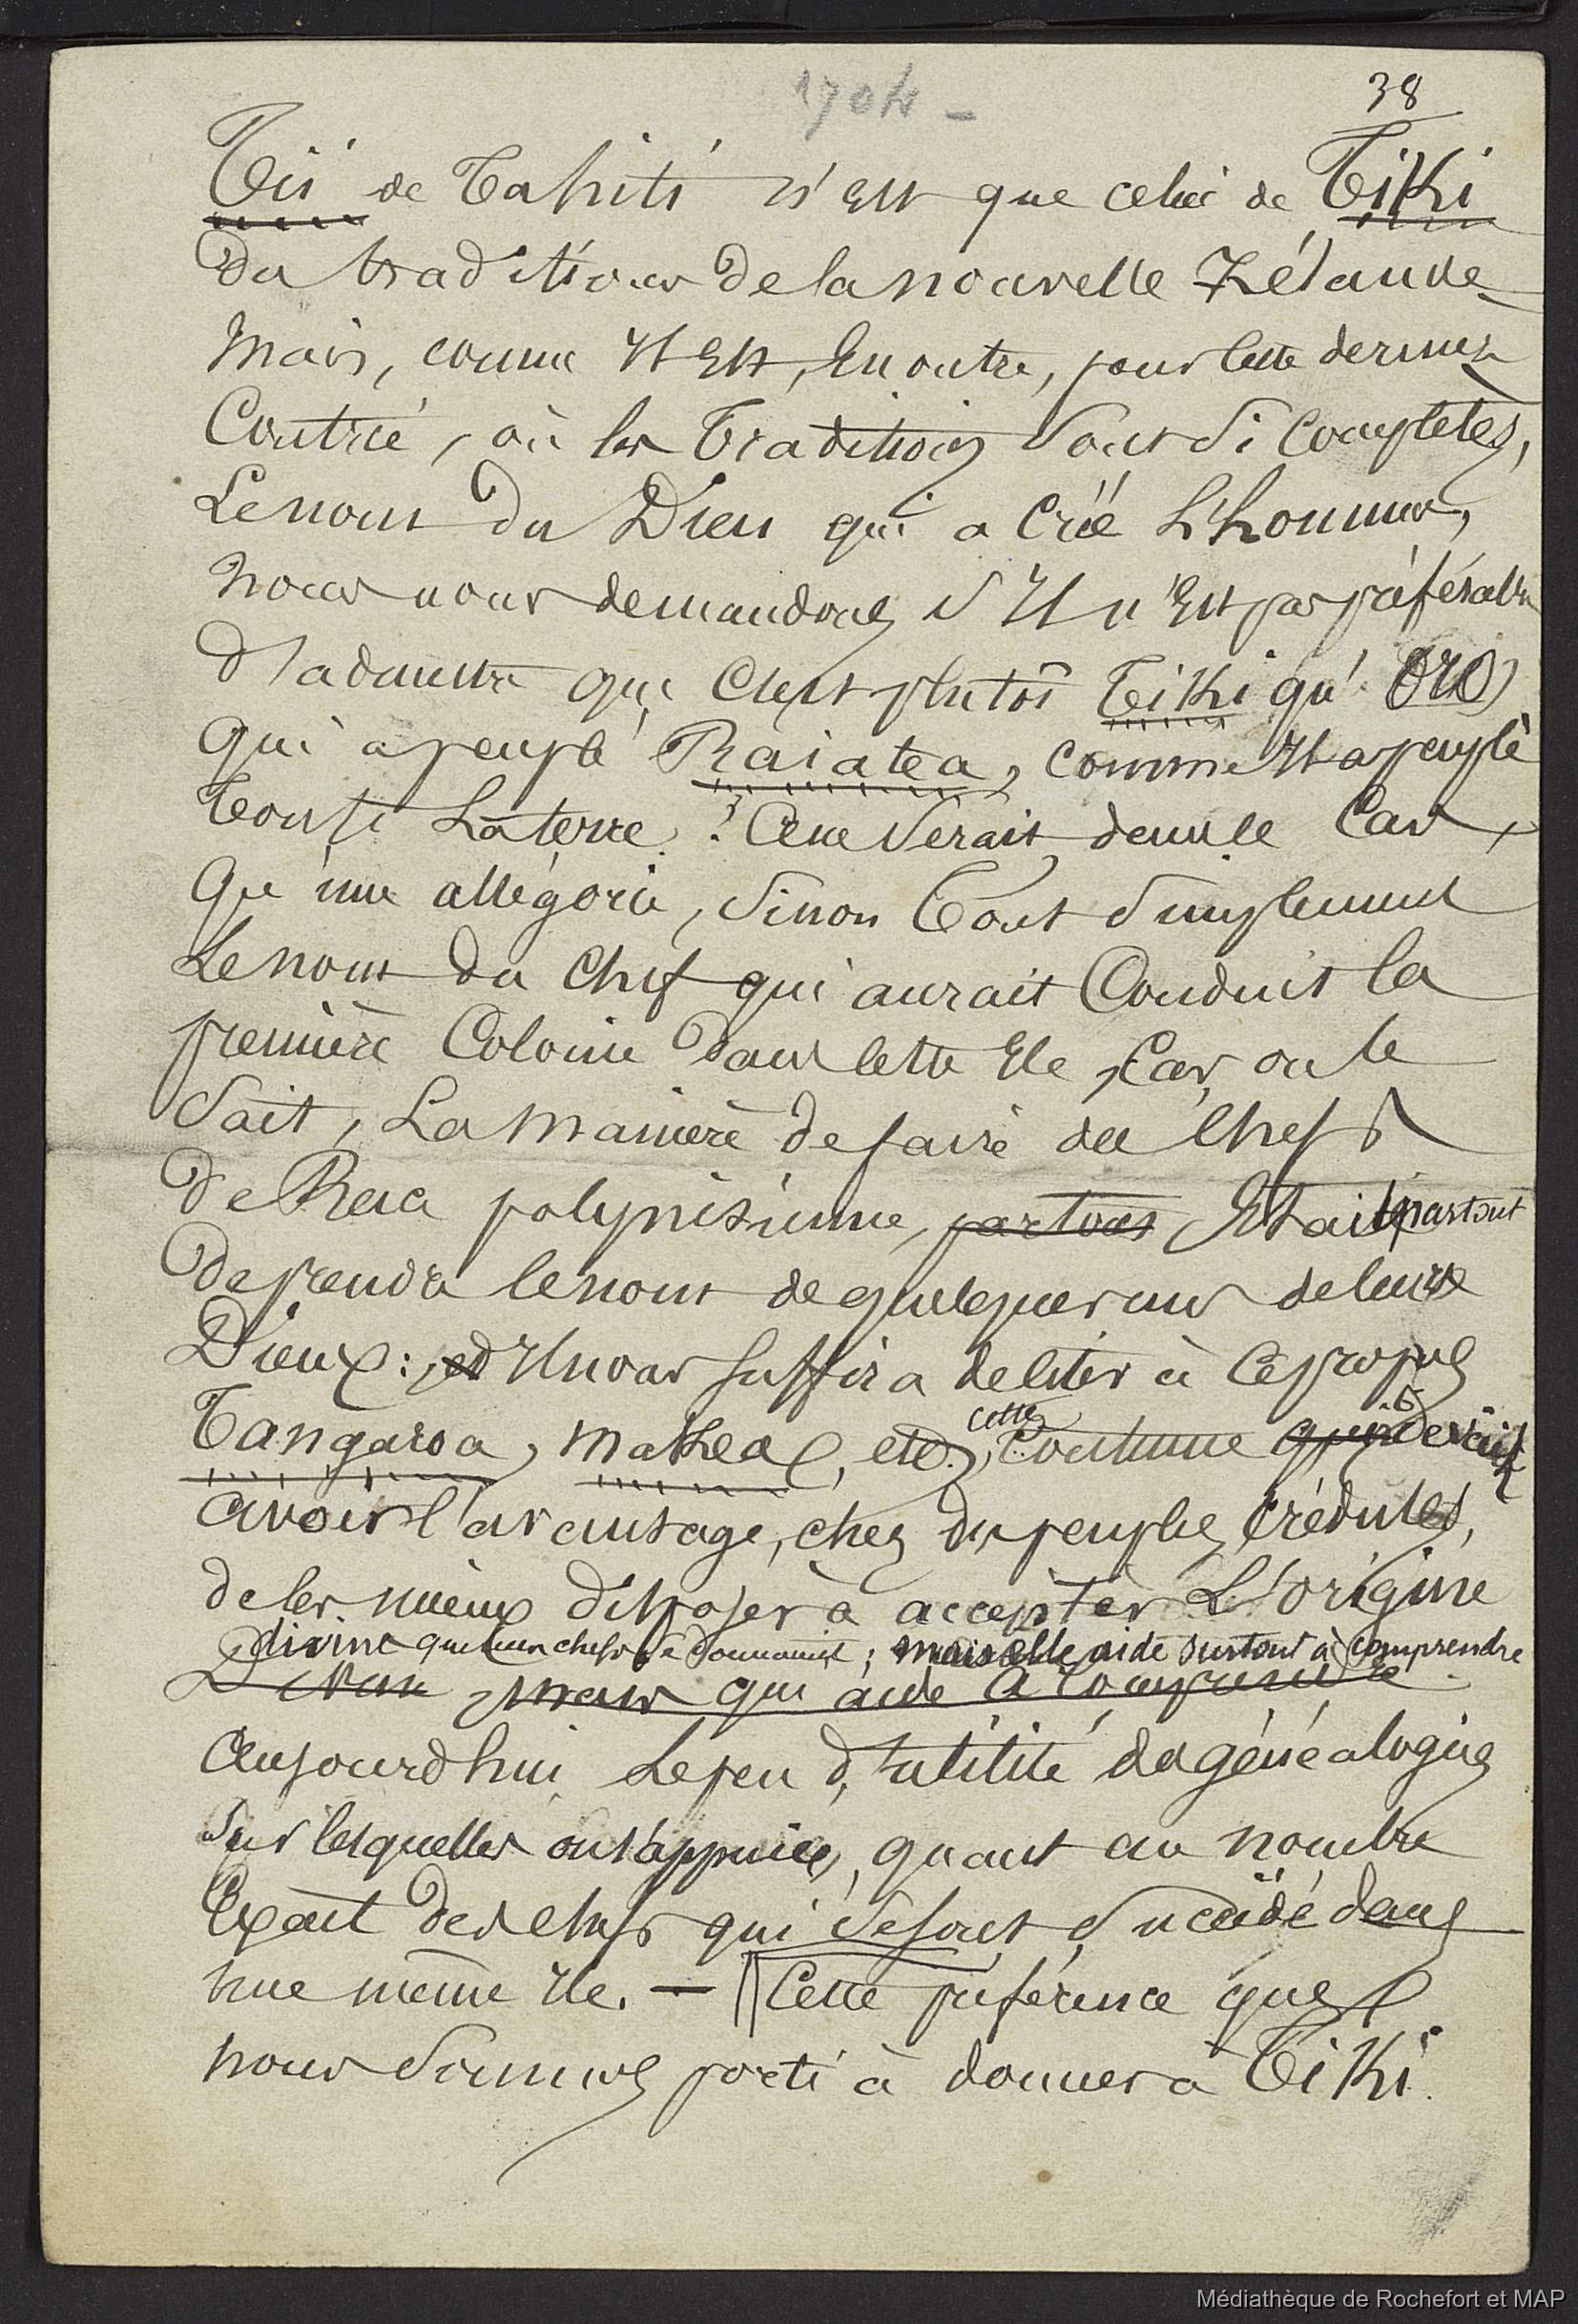 1704 -
38
Tii de Tahiti n'est que celui de Tiki
des traditions de la nouvelle Zélande -
Mais, comme Il Est, En outre, pour cette dernière
Contrée, où les Traditions Sont Si Completes,
Le nom du Dieu qui a Créé L'homme,
nous nous demandons S'Il n'Est pas préférable
d'admettre que C'est plutôt Tiki qu'ORO
qui a peuplé Raiatea, comme Il a peuplé
Toute La terre ? Ce ne Serait, dans ce Cas,
Qu'une allégorie, Sinon Tout Simplement
Le nom du Chef qui aurait Conduit la
première Colonie dans cette Ile, Car, on le
Sait, La manière de faire des Chefs
de Race polynésienne, partout Etait partout
de prendre le nom de quelques uns de leurs
Dieux : et Il nous Suffira de citer à Ce propos
Tangaroa, Makea, etc., cette Coutume qui devait
avoir l'avantage, chez des peuples Crédules,
de les mieux disposer à accepter L'origine
divine que leurs chefs se donnaient ; mais elle aide surtout à comprendre
Divine, mais qui aide à Comprendre
Aujourd'hui Le peu d'utilité des généalogies
Sur lesquelles on s'appuie, quant au nombre
Exact des chefs qui Se Sont Succédé dans
une même Ile. — Cette préférence que
nous Sommes porté à donner à Tiki
Médiathèque de Rochefort et MAP